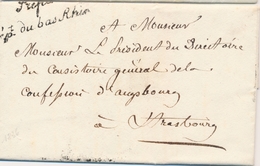 Préf
dépt. du bas Rhin
A Monsieur
Monsieur Le Président du Directoire
du Consistoire général de la
Confession d'augsbourg
à Strasbourg